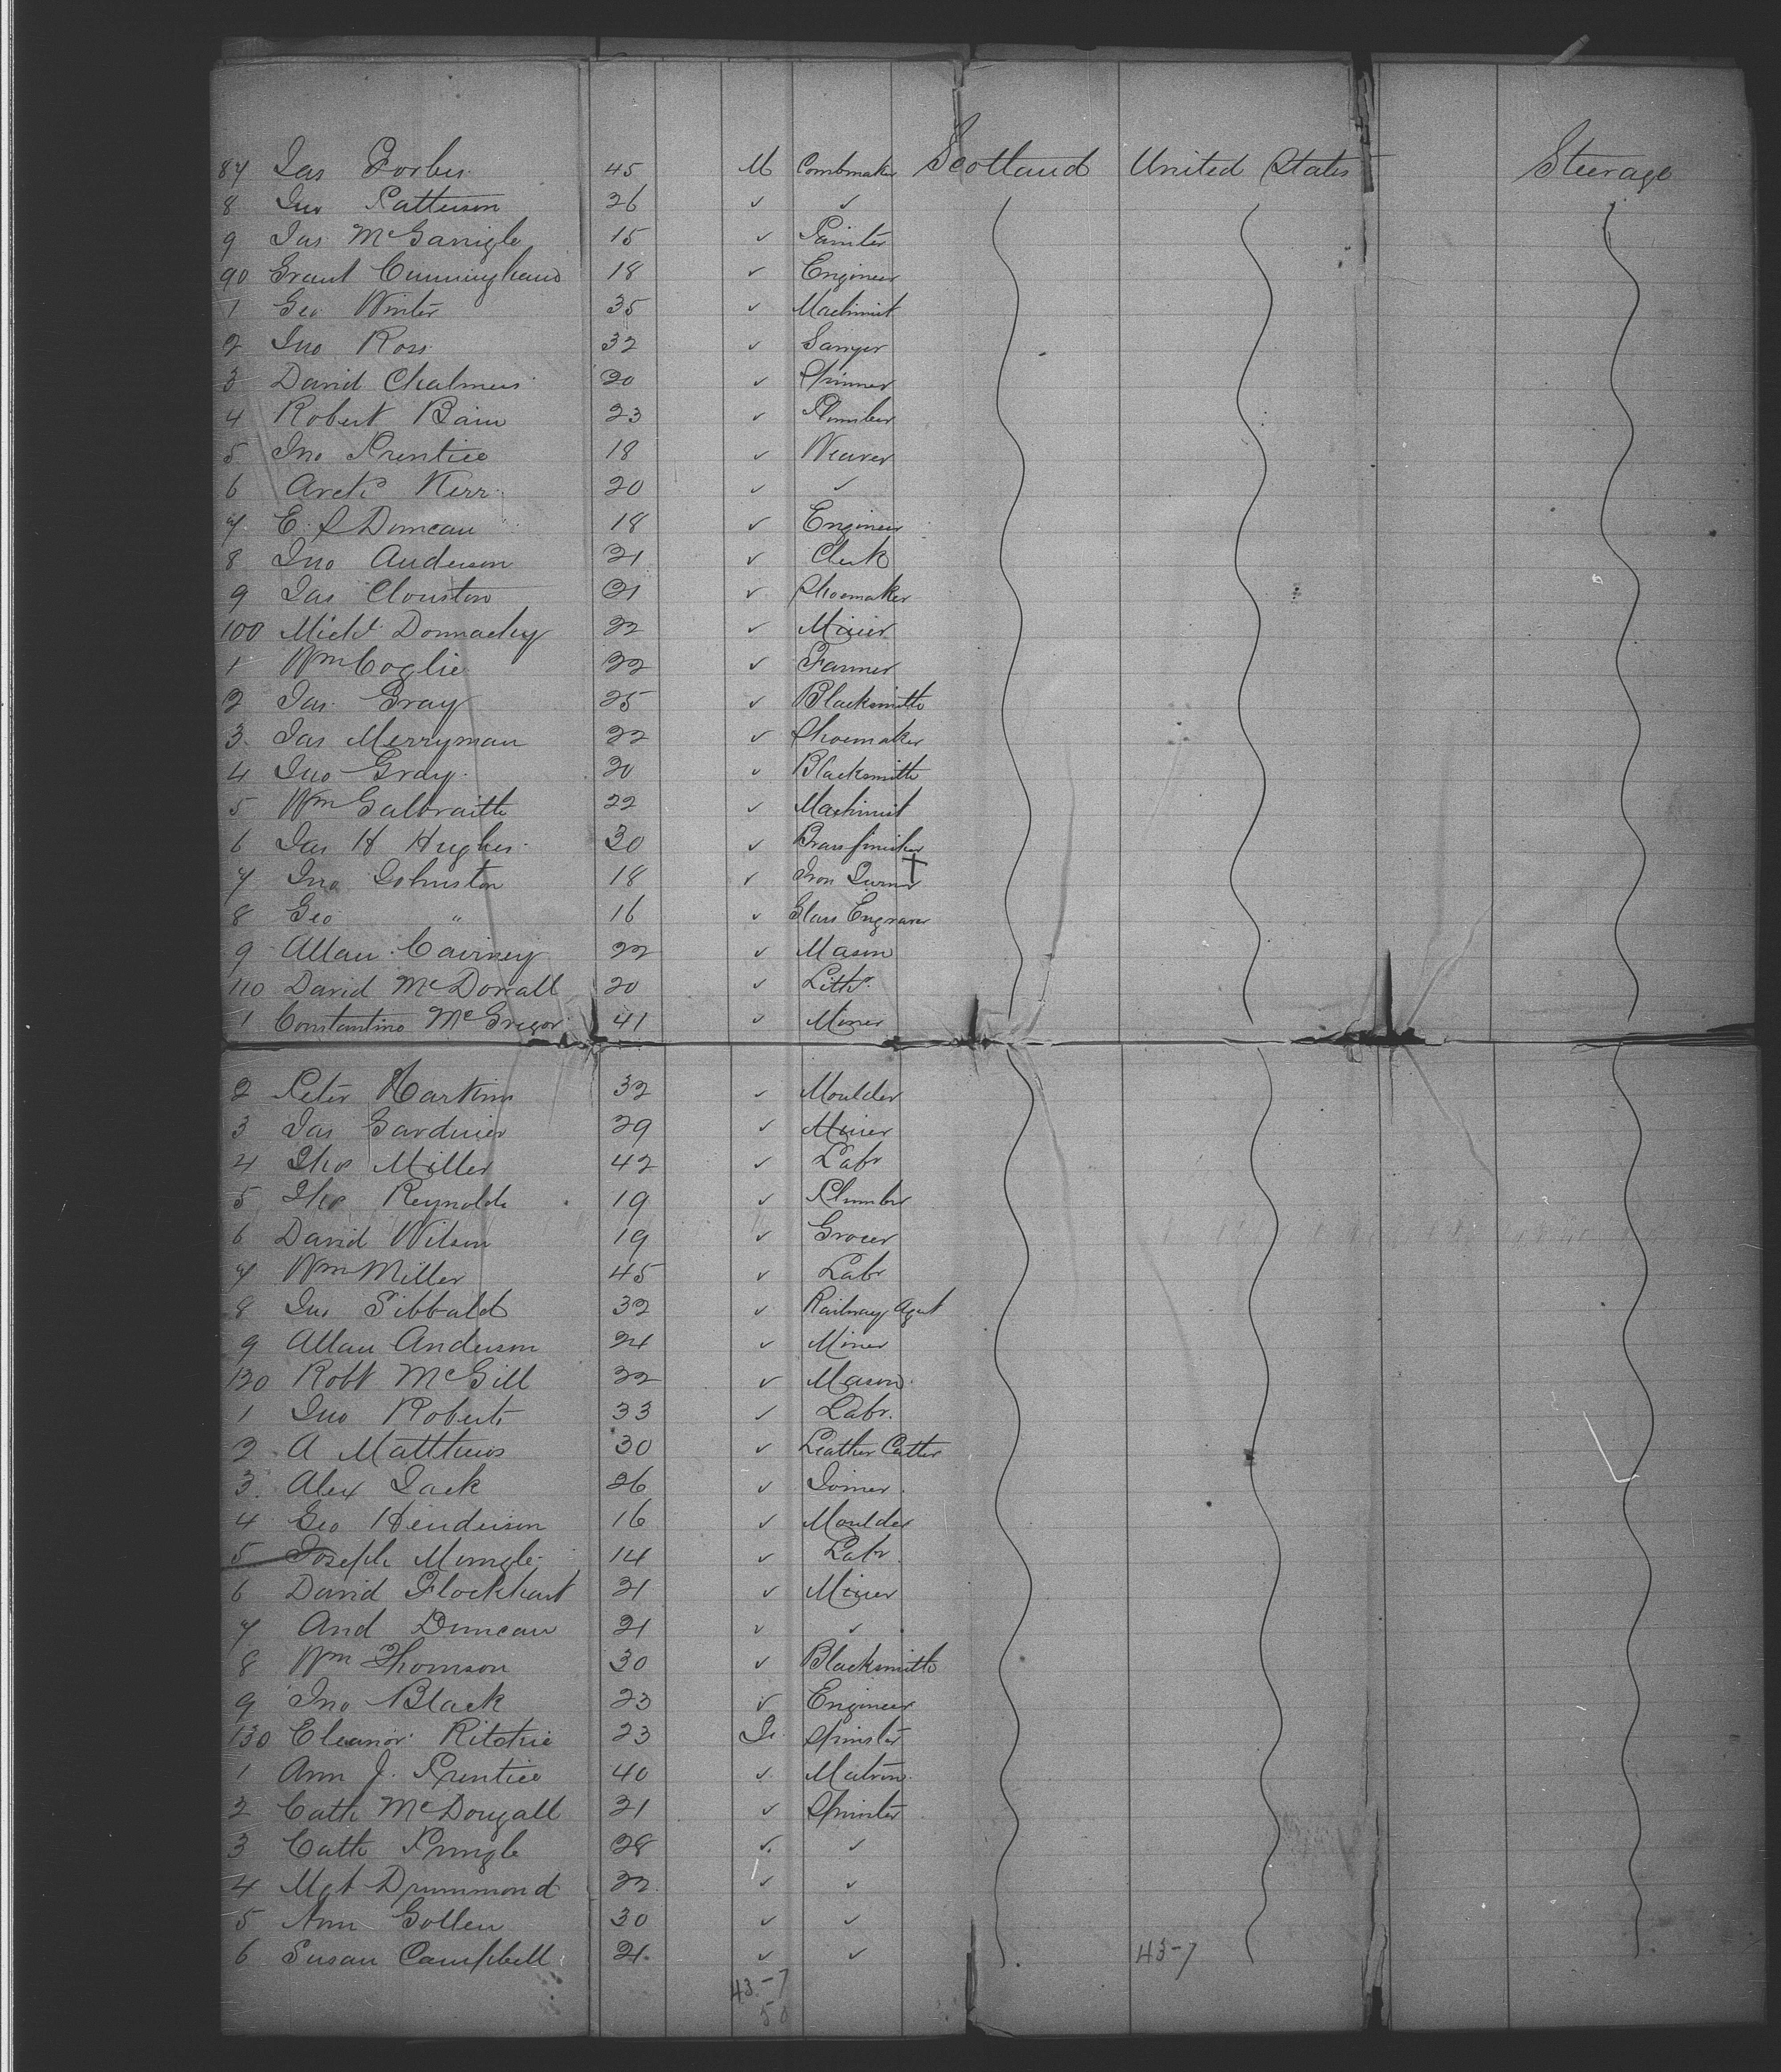 87 Jas Forbes 45 M Combmaker Scotland United States Steerage
8 Jno Patterson 26 ✓ ✓
9 Jas McGanigle 15 ✓ Painter
90 Grant Cunningham 18 ✓ Engineer
1 Geo Winter 35 ✓ Machinist
2 Jno Ross 32 ✓ Sawyer
3 David Chalmers 20 ✓ Spinner
4 Robert Bain 23 ✓ Plumber
5 Jno Prentice 18 ✓ Weaver
6 Arch Kerr 20 ✓ ✓
7 E Duncan 18 ✓ Engineer
8 Jno Anderson 21 ✓ Clerk
9 Jas Clouston 21 ✓ Shoemaker
100 Michl Donnachy 22 ✓ Miner
1 Wm Coglie 22 ✓ Farmer
2 Jas Gray 25 ✓ Blacksmith
3 Jas Merryman 22 ✓ Shoemaker
4 Jno Gray 20 ✓ Blacksmith
5 Wm Galbraith 22 ✓ Machinist
6 Jas H Hughes 30 ✓ Brassfinisher
7 Jno Johnston 18 ✓ Iron Turner
8 Geo " 16 ✓ Glass Engraver
9 Allan Cairney 22 ✓ Mason
110 David McDorrall 20 ✓ Lithr
1 Constantine McGregor 41 ✓ Miner
2 Peter Harkins 32 ✓ Moulder
3 Jas Gardiner 29 ✓ Miner
4 Thos Miller 42 ✓ Labr
5 Thos Reynolds 19 ✓ Plumber
6 David Wilson 19 ✓ Grocer
7 Wm Miller 45 ✓ Labr
8 Jno Sibbald 32 ✓ Railway Agent
9 Allan Anderson 24 ✓ Miner
120 Robt McGill 32 ✓ Mason
1 Jno Roberts 33 ✓ Labr.
2 A Matthews 30 ✓ Leather Cutter
3 Alex Jack 26 ✓ Joiner
4 Geo Henderson 16 ✓ Moulder
5 Joseph Mungle 14 ✓ Labr
6 David Flockhart 21 ✓ Miner
7 And Duncan 21 ✓ ✓
8 Wm Thomson 30 ✓ Blacksmith
9 Jno Black 23 ✓ Engineer
130 Eleanor Ritchie 23 Fe Spinster
1 Ann J. Prentice 40 ✓ Matron
2 Cath McDougall 21 ✓ Spinster
3 Cath Pringle 28 ✓ ✓
4 Mgt Drummond 22 ✓ ✓
5 Ann Gollen 30 ✓ ✓
6 Susan Campbell 21 ✓ ✓ 43-7
43-7
50